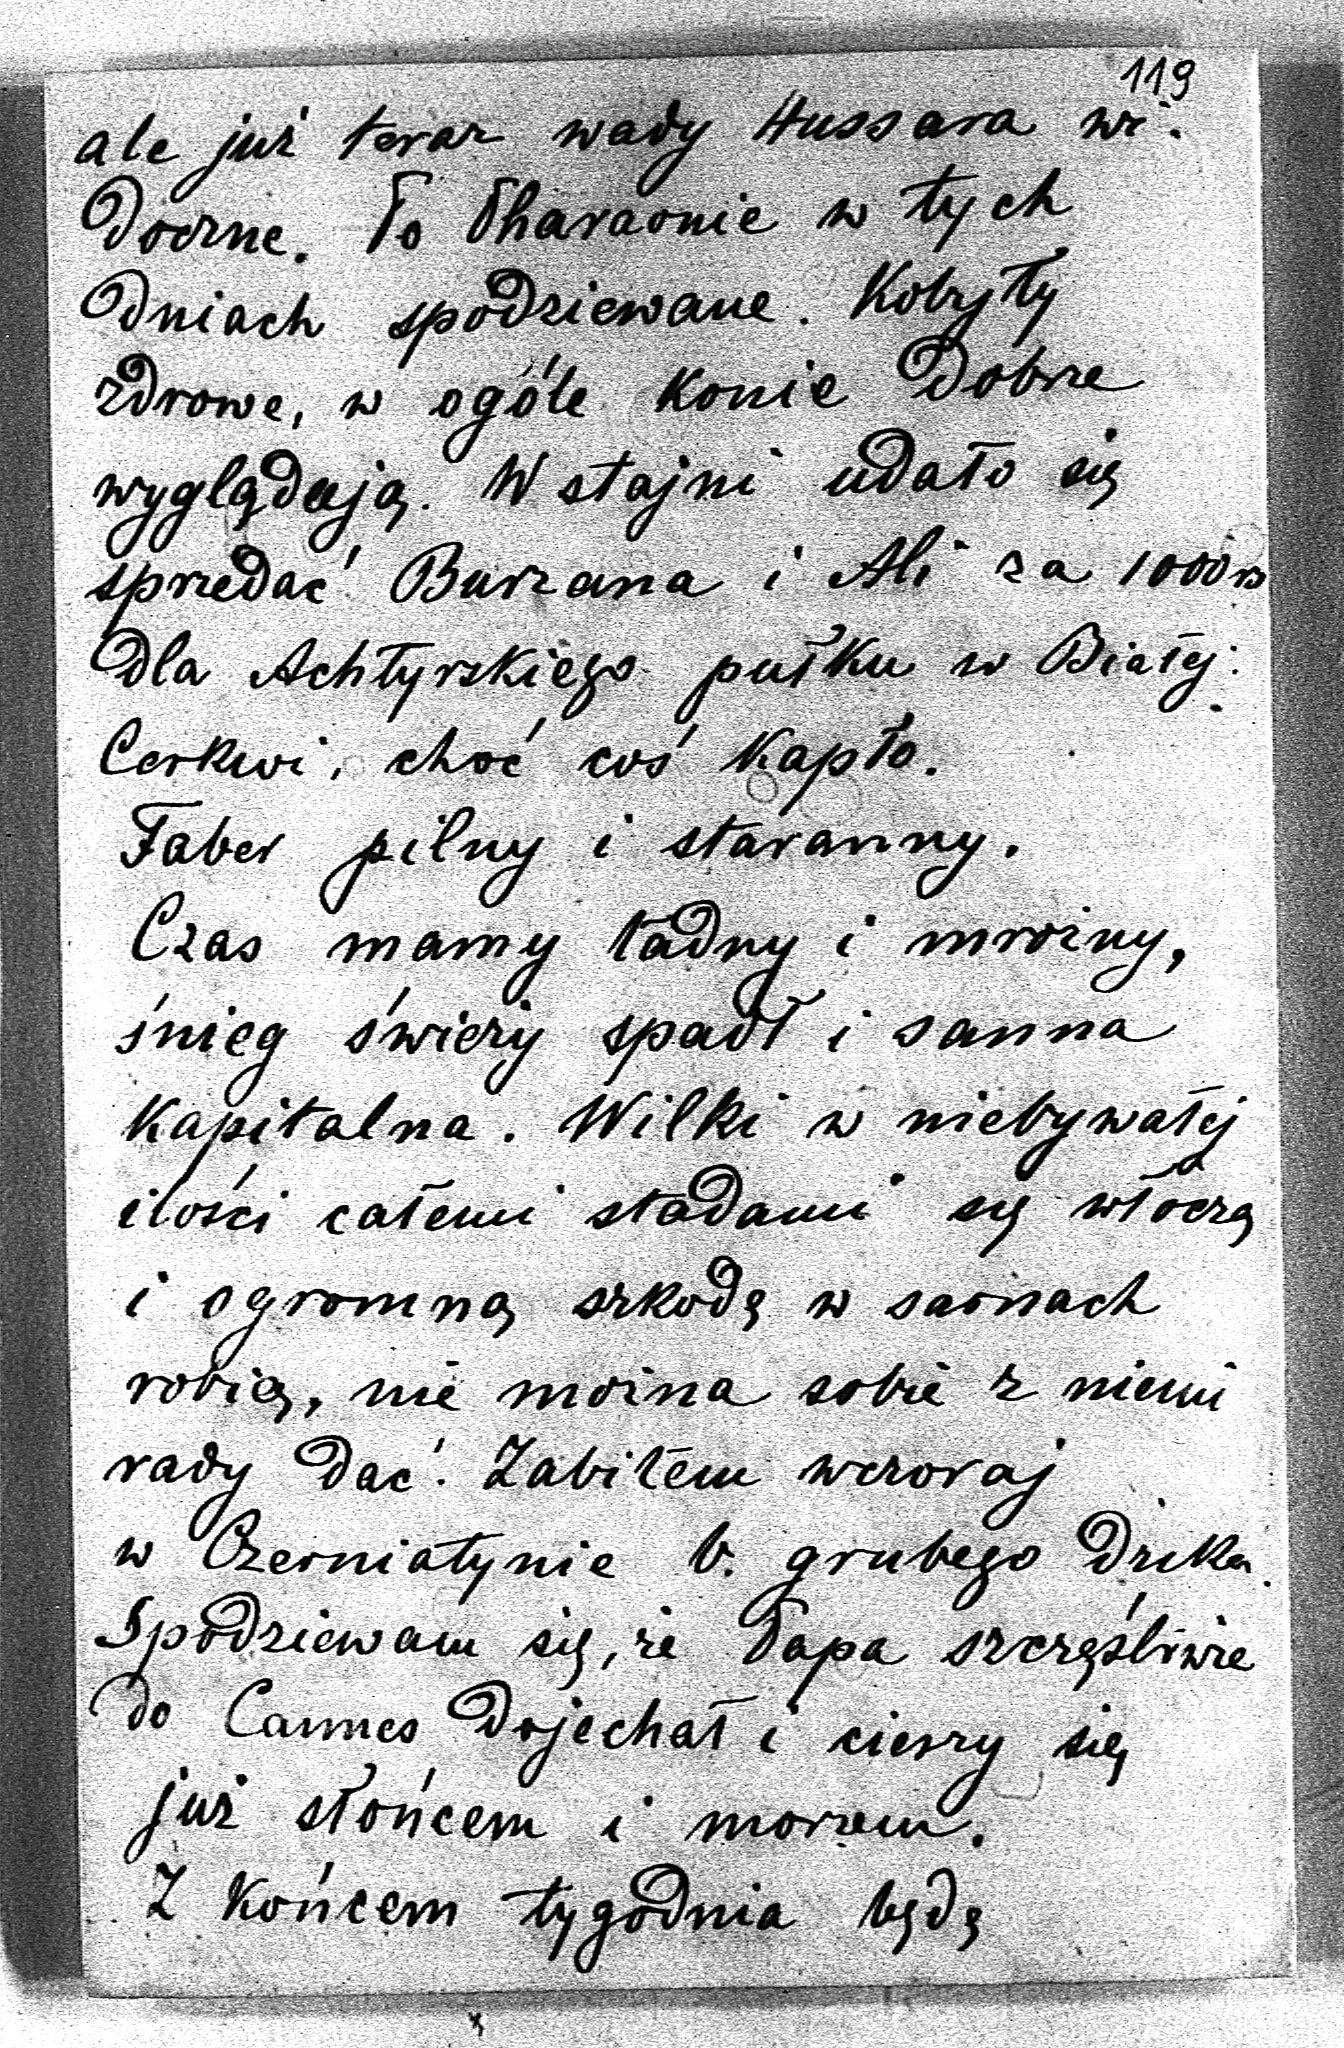 119
ale już teraz wady Hussara wi-
doczne. Po Pharaonie w tych
dniach spodziewane. Kobyły
zdrowe, w ogóle konie dobrze
wyglądają. W stajni udało się
sprzedać Burzana i Ali za 1000 rs
dla Achtyrskiego pułku w Białej-
Cerkwi, choć coś kapło.
Faber pilny i staranny.
Czas mamy ładny i mroźny,
śnieg świeży spadł i sanna
kapitalna. Wilki w niebywałej
ilości całemi stadami się włóczą
i ogromną szkodę w sarnach
robią, nie można sobie z niemi
rady dać. Zabiłem wczoraj
w Czerniatynie b. grubego dzika.
Spodziewam się, że Papa szczęśliwie
do Cannes dojechał i cieszy się
już słońcem i morzem.
Z końcem tygodnia będę